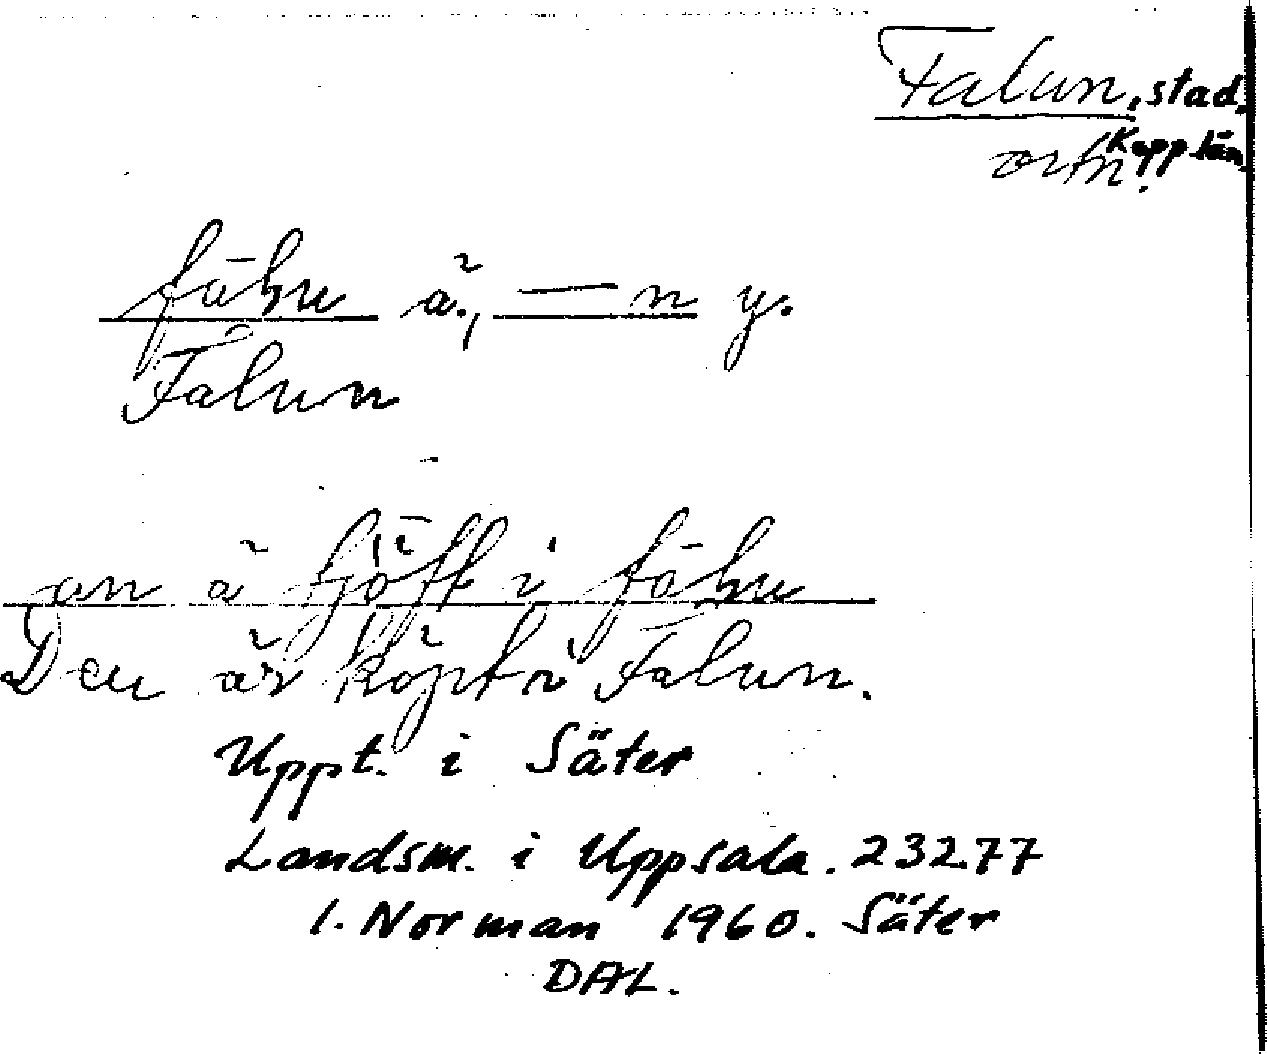 Falun, stad.
ortn. Kopp. län.
fāłu ä., — n y.
Falun
an ä tjöft i fāłu
Den är köpt i Falun.
Uppt. i Säter
Landsm. i Uppsala. 23277
I. Norman 1960. Säter
DAL.